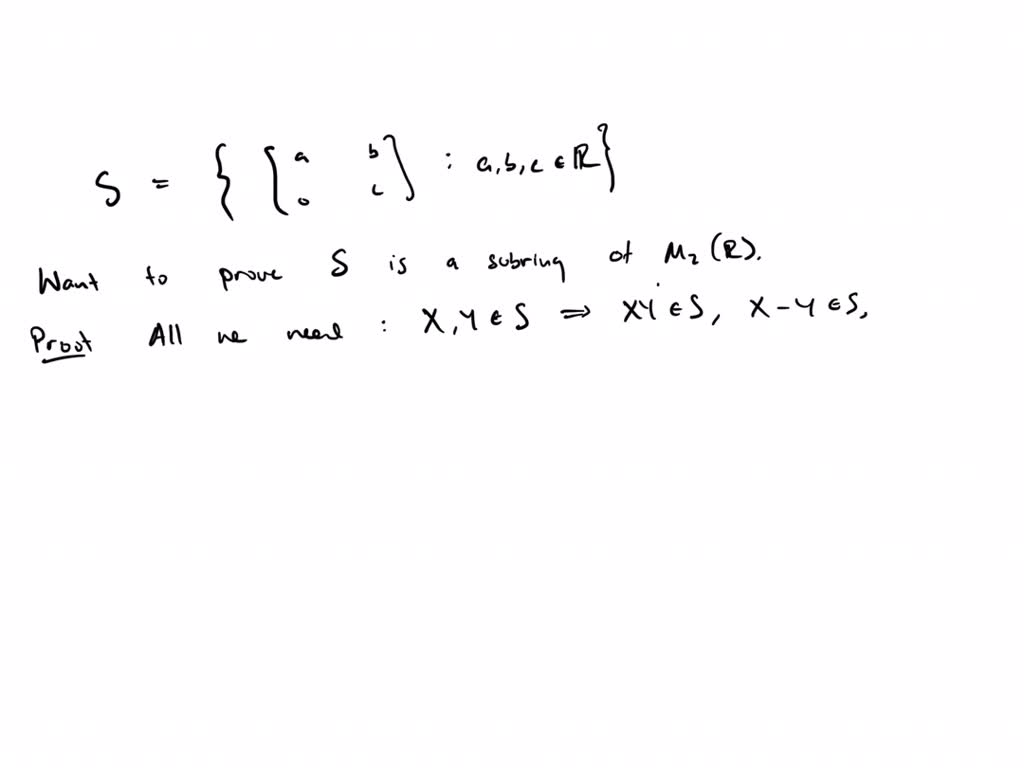 S = { [ a b ; 0 c ] : a,b,c ∈ ℝ }
Want to prove S is a subring of M₂(ℝ).
Proof All we need : X,Y ∈ S ⇒ XY ∈ S, X-Y ∈ S,